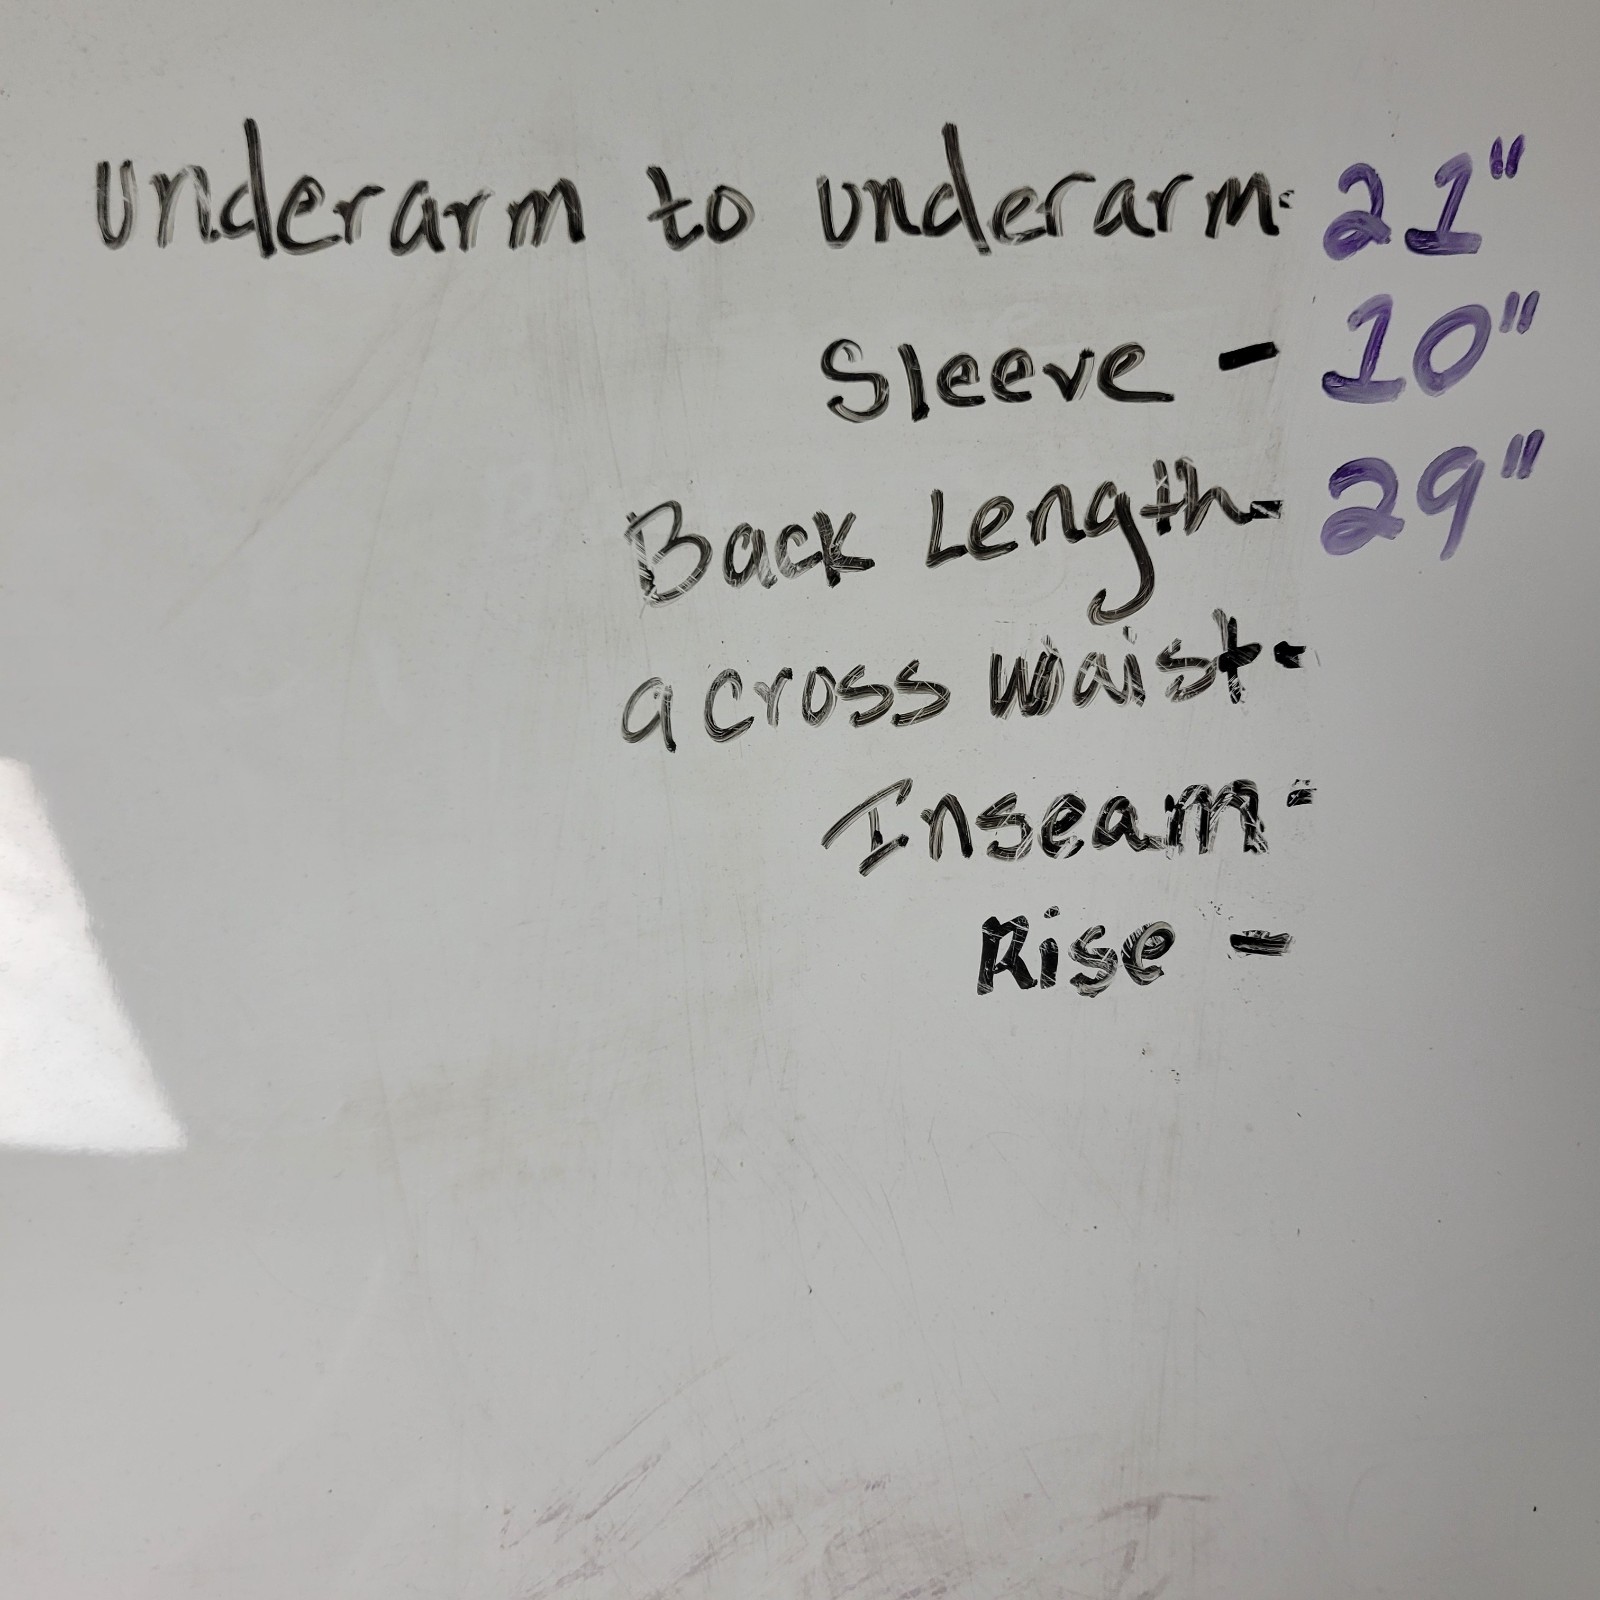 Underarm to underarm- 21"
Sleeve - 10"
Back Length- 29"
across waist-
Inseam-
Rise -